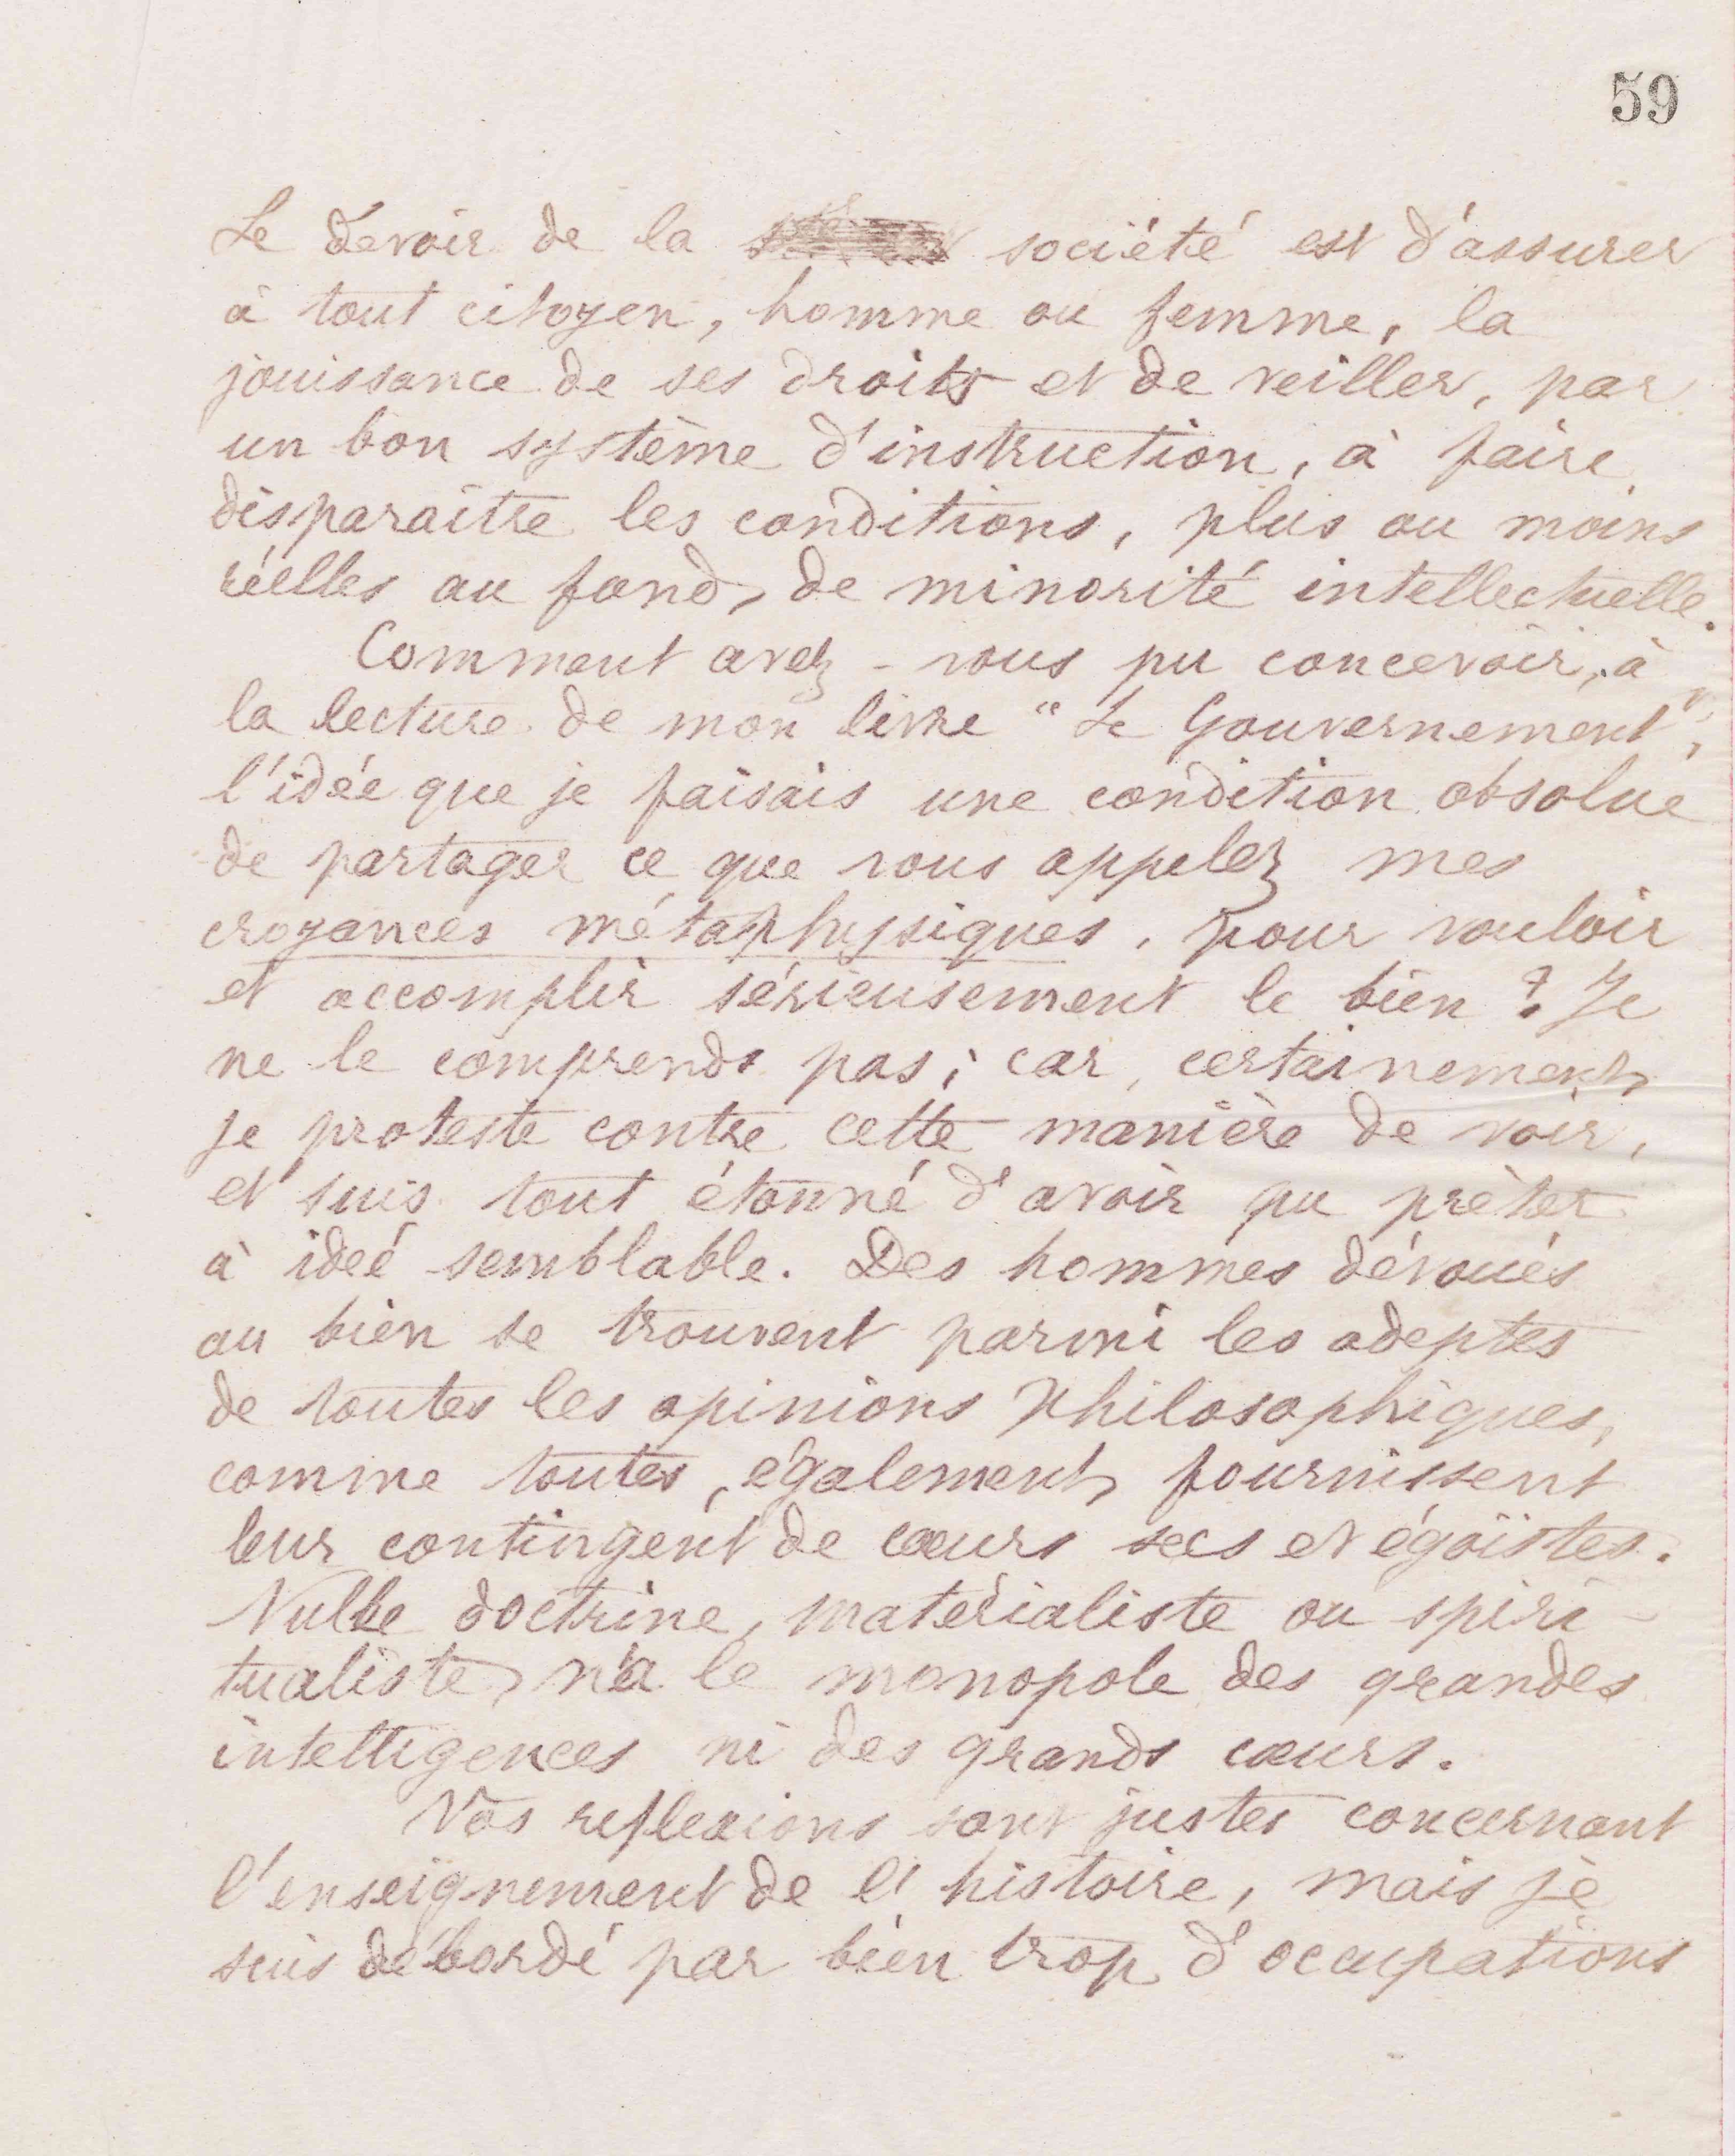 59
Le devoir de la société est d'assurer
à tout citoyen, homme ou femme, la
jouissance de ses droits et de veiller, par
un bon système d'instruction, à faire
disparaître les conditions, plus ou moins
réelles au fond, de minorité intellectuelle.
Comment avez-vous pu concevoir, à
la lecture de mon livre "Le Gouvernement",
l'idée que je faisais une condition absolue
de partager ce que vous appelez mes
croyances métaphysiques, pour vouloir
et accomplir sérieusement le bien ? Je
ne le comprends pas ; car, certainement,
je proteste contre cette manière de voir,
et suis tout étonné d'avoir pu prêter
à ideé semblable. Des hommes dévoués
au bien se trouvent parmi les adeptes
de toutes les opinions philosophiques,
comme toutes, également, fournissent
leur contingent de cœurs secs et égoïstes.
Nulle doctrine, matérialiste ou spiri-
tualiste, n'a le monopole des grandes
intelligences ni des grands cœurs.
Vos reflexions sont justes concernant
l'enseignement de l'histoire, mais je
suis débordé par bien trop d'occupations